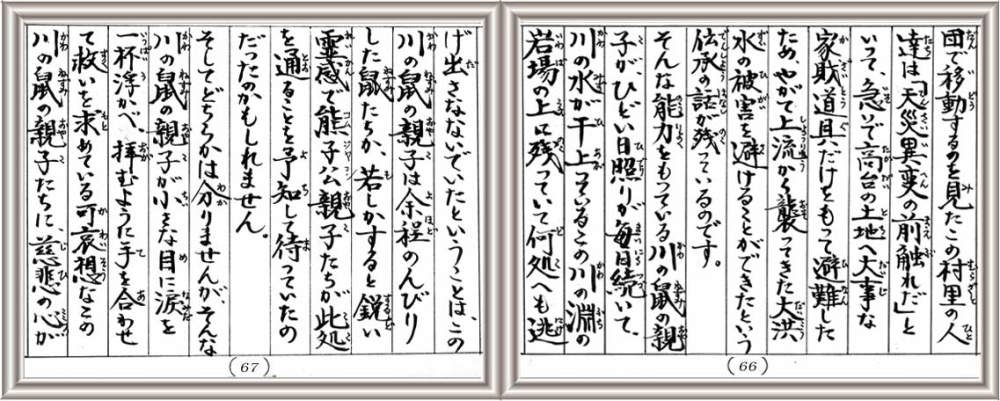 団で移動するのを見たこの村里の人
達は「天災異変の前触れだ」と
いって急いで高台の土地へ大事な
家財道具だけをもって避難した
ため、やがて上流から襲ってきた大洪
水の被害を避けることができたという
伝承の話が残っているのです。
そんな能力をもっている川の鼠の親
子が、ひどい日照りが毎日続いて、
川の水が干上っているこの川の淵の
岩場の上に残っていて何処へも逃
（66）
げ出さないでいたということは、この
川の鼠の親子は余程のんびり
した鼠たちか、若しかすると鋭い
霊感で熊子公親子たちが此処
を通ることを予知して待っていたの
だったのかもしれません。
そしてどちらかは分りませんが、そんな
川の鼠の親子が小さな目に涙を
一杯浮かべ、拝むように手を合わせ
て救いを求めている可哀想なこの
川の鼠の親子たちに、慈悲の心が
（67）